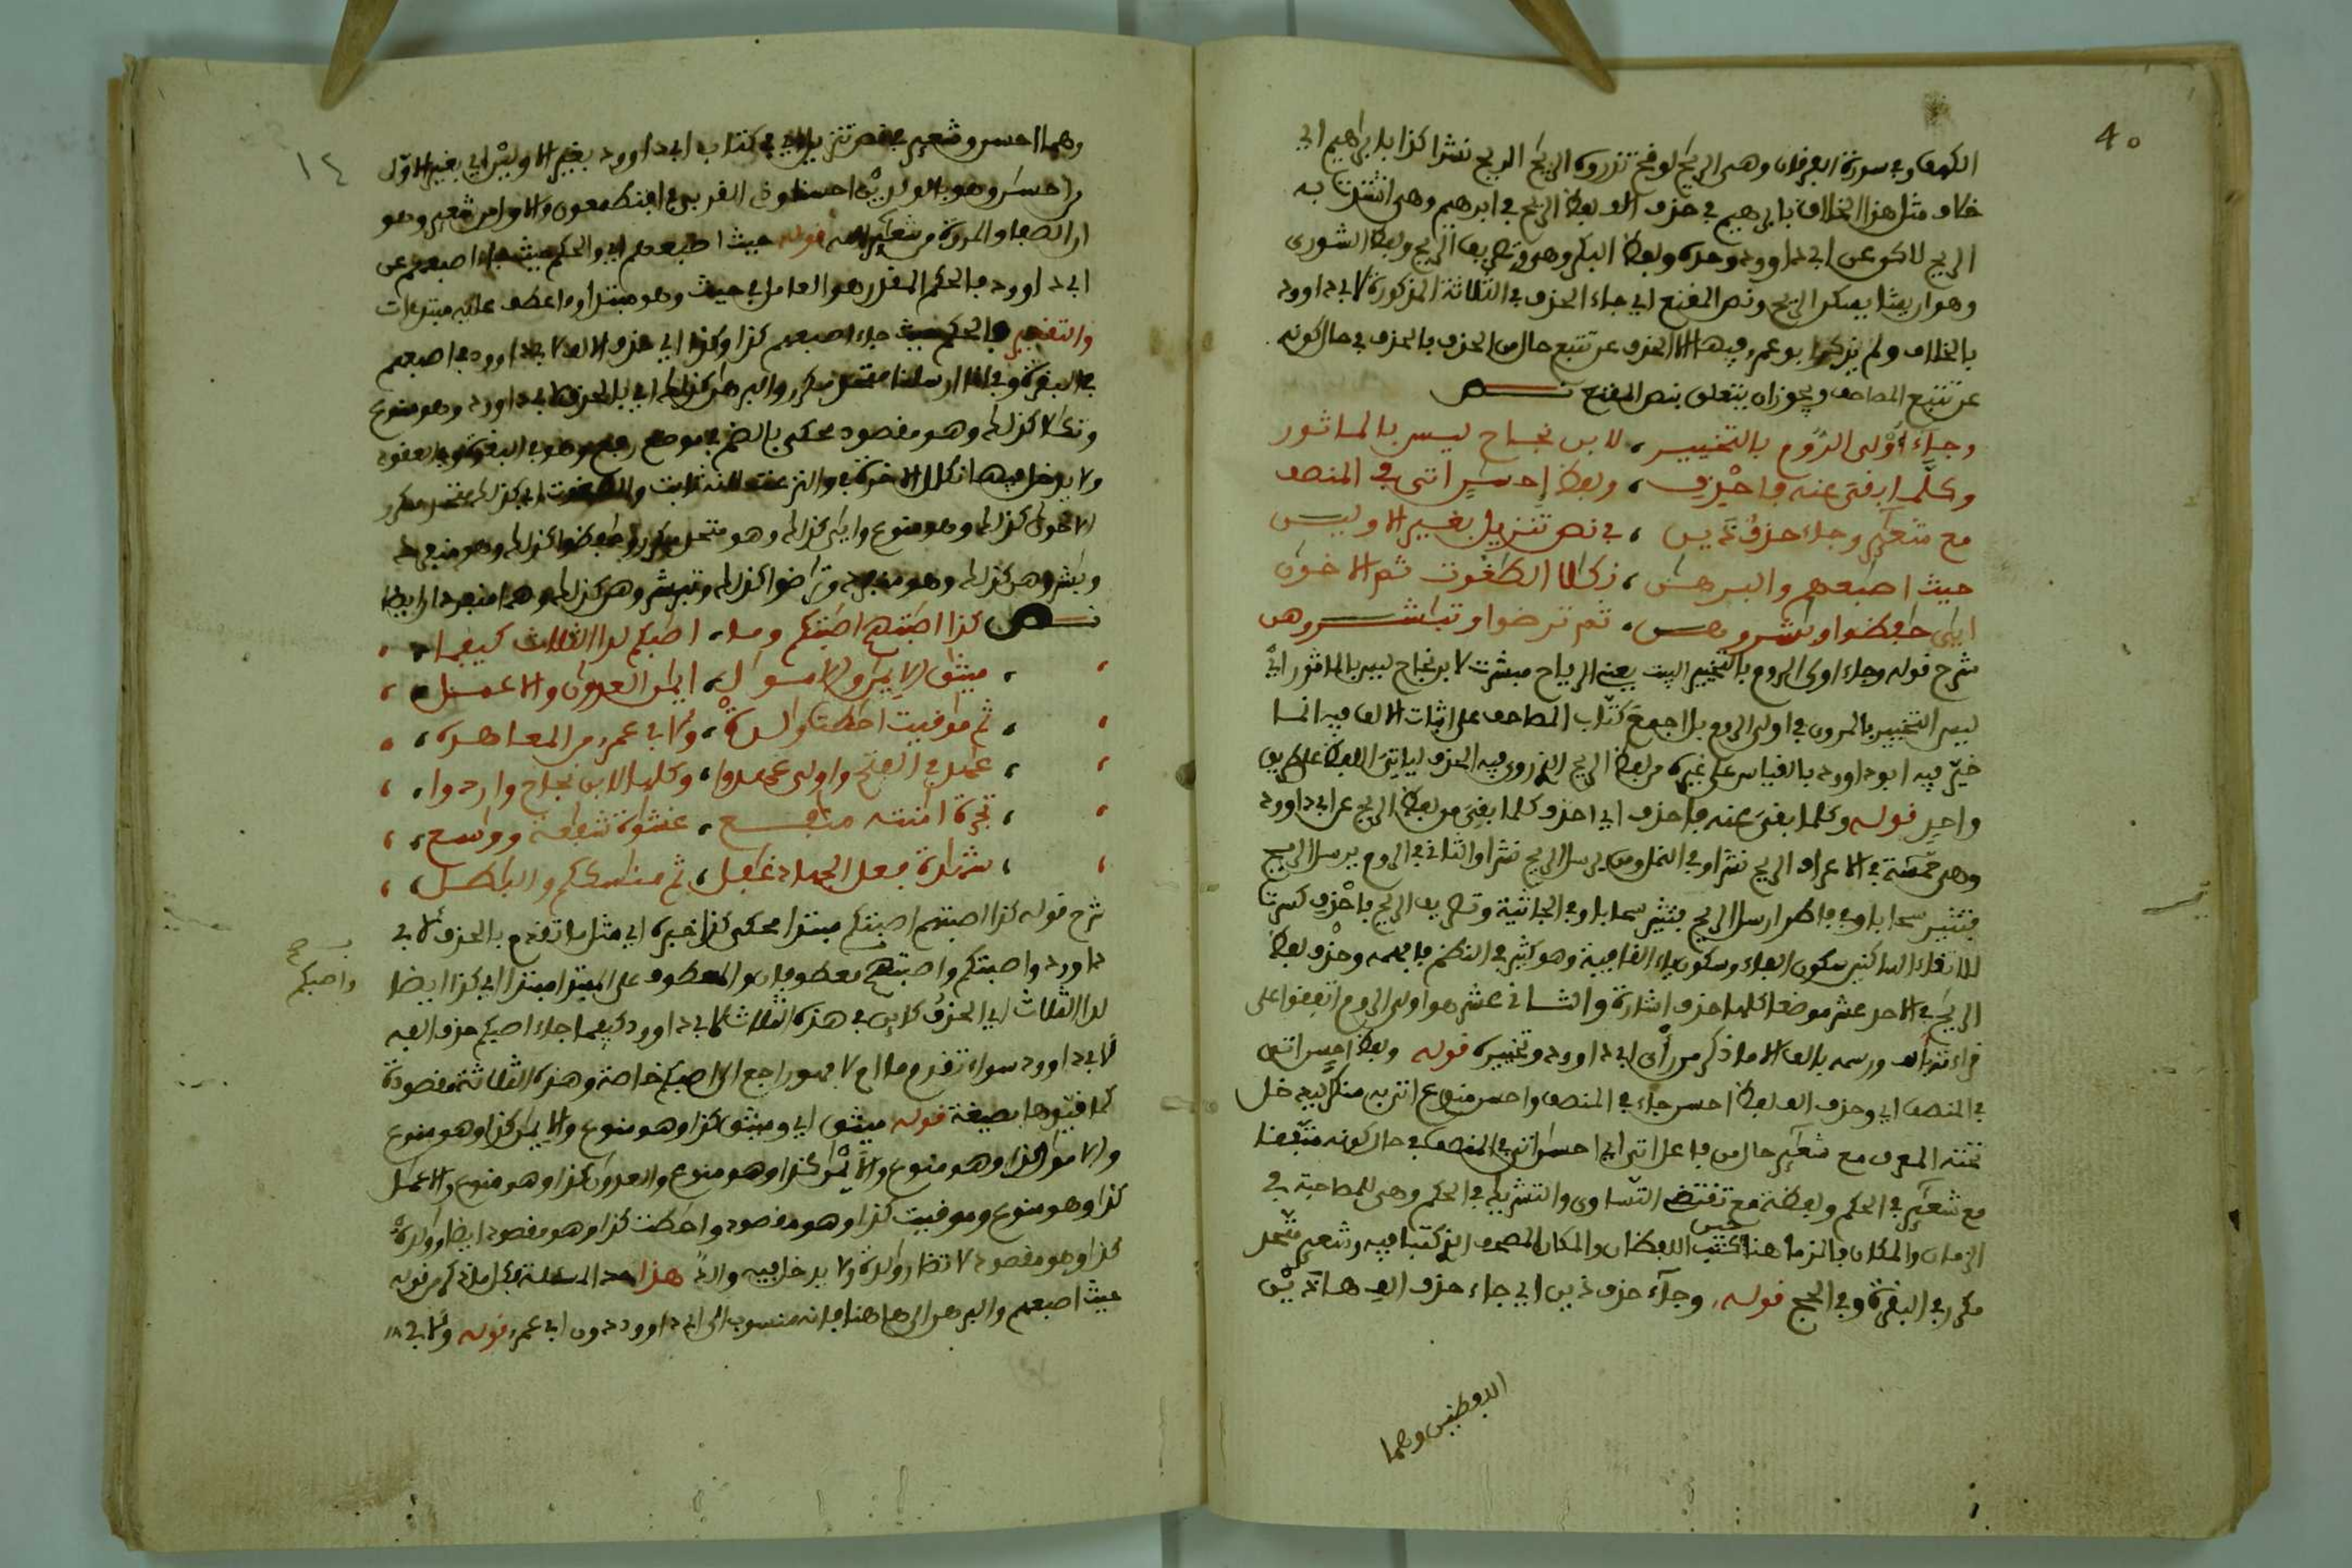 40
الكهف وفي سورة الفرقان وهي الريح لوقح تذروه الريح الريح نشرا كذا بابراهيم اي
خلاف مثل هذا الخلاف بابراهيم في حذف الف لفظ الريح في ابرهيم وهي اشتدت به
الريح لاكن عن ابي داوود وحده ولفظ البكر وهو وتصريف الريح ولفظ الشورى
وهو ان يشا يسكن الريح ونص المقنع اي جاء الحذف في الثلاثة المذكورة لابي داوود
بالخلاف ولم يذكر ابو عمر فيها الا الحذف عن تتبع حال من الحذف بالحذف في حال كونه
عن تتبع المصاحف ويجوز ان يتعلق بنص المقنع نص
وجاء أولى الروم بالتخيير، لابن نجاح ليس بالماثور
وكلما بقى عنه فاحذف، ولفظ إحسن اتى في المنصف
مع شعير وجاء حذف ذين، في نص تنزيل بغير الاولين
حيث اصبعهم والبرهن، نكلا الطغوت ثم الاخون
ايى حفظوا وبشروهن، ثم ترضوا وتبشروهن
شرح قوله وجاء اولى الروم بالتخيير البيت يعنى الرياح مبشرت لابن نجاح ليس بالماثور اي
ليس التخيير بالمروي في اولى الروم بل اجمع كتاب المصاحف على اثبات الالف فيه انما
خير فيه ابو داوود بالقياس على غيره من لفظ الريح الذي روي فيه الحذف لياتي اللفظ على طريق
واحد قوله وكلما بقى عنه فاحذف اي احذف كلما بقى من لفظ الريح عن ابي داوود
وهي خمسة في الاعراف الريح نشرا وفي النمل ومن يرسل الريح نشرا والثاني في الروم يرسل الريح
فتثير سحابا وفي فاطر ارسل الريح فتثير سحابا وفي الجاثية وتصريف الريح فاحذف كسرتا
لالتقاء الساكنين سكون الفاء وسكون ياء القافية وهو كثير في النظم فافهمه وحذف لفظ
الريح في الاحد عشر موضعا كلها حذف اشارة والثاني عشر هو اولى الروم اتفقوا على
قراءته بالف ورسمه بالف الا ما ذكر من رأى ابي داوود وتخييره قوله ولفظ احسن اتى
في المنصف اي وحذف الف لفظ احسن جاء في المنصف واحسن منوع اتى به منكرا ليدخل
تحته المعرف مع شعير حال من فاعل اتى اي احسن اتى في المنصف في حال كونه متفقا
مع شعير في الحكم ولفظة مع تقتضي التساوى والتشريك في الحكم وهي للمصاحبة في
الزمان والمكان فالزمان هنا حين كتب اللفظان والمكان المصحف الذي كتبا فيه وشعير متحد
مكرر في البقرة وفي الحج قوله وجاء حذف ذين اي جاء حذف الف هاذين
اللفظين وهما
١٤
وهما احسن وشعير في نص تنزيل اي في كتاب ابي داوود بغير الاولين اي بغير الاول
من احسن وهو بالولدين احسنا وذى القربى في افتطمعون والاول من شعير وهو
ان الصفا والمروة من شعير الله قوله حيث اصبعهم اي والحكم حيث جاء اصبعهم عن
ابي داوود فالحكم المقدر هو العامل في حيث وهو مبتدا وما عطف عليه مبتدءات
والتقدير والحكم حيث جاء اصبعهم كذا وكذا اي حذف الالف لابي داوود في اصبعهم
في البقرة وفي انا ارسلنا متحد مكرر والبرهن كذلك اي بالحذف لابي داوود وهو منوع
ونكالا كذلك وهو مقصود محكى بالضم في موضع رفع وهو في البقرة وفي العقود
ولا يدخل فيها نكال الاخرة في والنزعت لانه ثابت والطغوت اي كذلك متحد مكرر
الاخون كذلك وهو منوع وايى كذلك وهو متحد مكرر وحفظوا كذلك وهو منفرد
وبشروهن كذلك وهو منفرد وترضوا كذلك وتبشروهن كذلك وهما منفردان ايضا
نص كذا اصبتهم اصبتكم وما، اصبكم لدا الثلث كيفما
ميثق الايمن والاموال، ايمن العدون والاعمل
ثم موقيت احطت ولدة، ولابي عمر من المعاهدة
عهد في الفتح واولى عهدوا، وكلها لابن نجاح واردوا
تجرة امنته منفع، غشوة شفعة ووسع
شهدة فعل الجهد غفل، ثم منسككم والبطل
شرح قوله كذا اصبتهم اصبتكم مبتدا محكى كذا خبره اي مثل ما تقدم بالحذف لابي
داوود واصبتكم واصبتهم معطوفان والمعطوف على المبتدا مبتدا اي كذا ايضا
واصبكم
لدا الثلاث اي الحذف كاين في هذه الثلاث لابي داوود كيفما جاء اصبكم حذف الفه
لابي داوود سواء تقدم ما ام لا فهو راجع الى اصبكم خاصة وهذه الثلاثة مقصودة
لما قيدوها بصيغة قوله ميثق اي وميثق كذا وهو منوع والايمن كذا وهو منوع
والاموال كذا وهو منوع والايمن كذا وهو منوع والعدون كذا وهو منوع والاعمل
كذا وهو منوع وموقيت كذا وهو مقصود واحطت كذا وهو مقصود ايضا وولدة
كذا وهو مقصود لا تضار ولدة ولا يدخل فيه والد هذا المسئلة من قوله
حيث اصبعهم والبرهن الى هاهنا فانه منسوب الى ابي داوود دون ابي عمر قوله ولابي